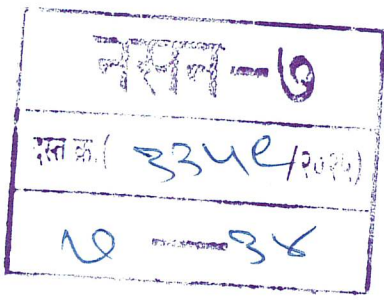 नसन - ७
दस्त क्र. ( ३३५९ /२०२५)
७ — ३४